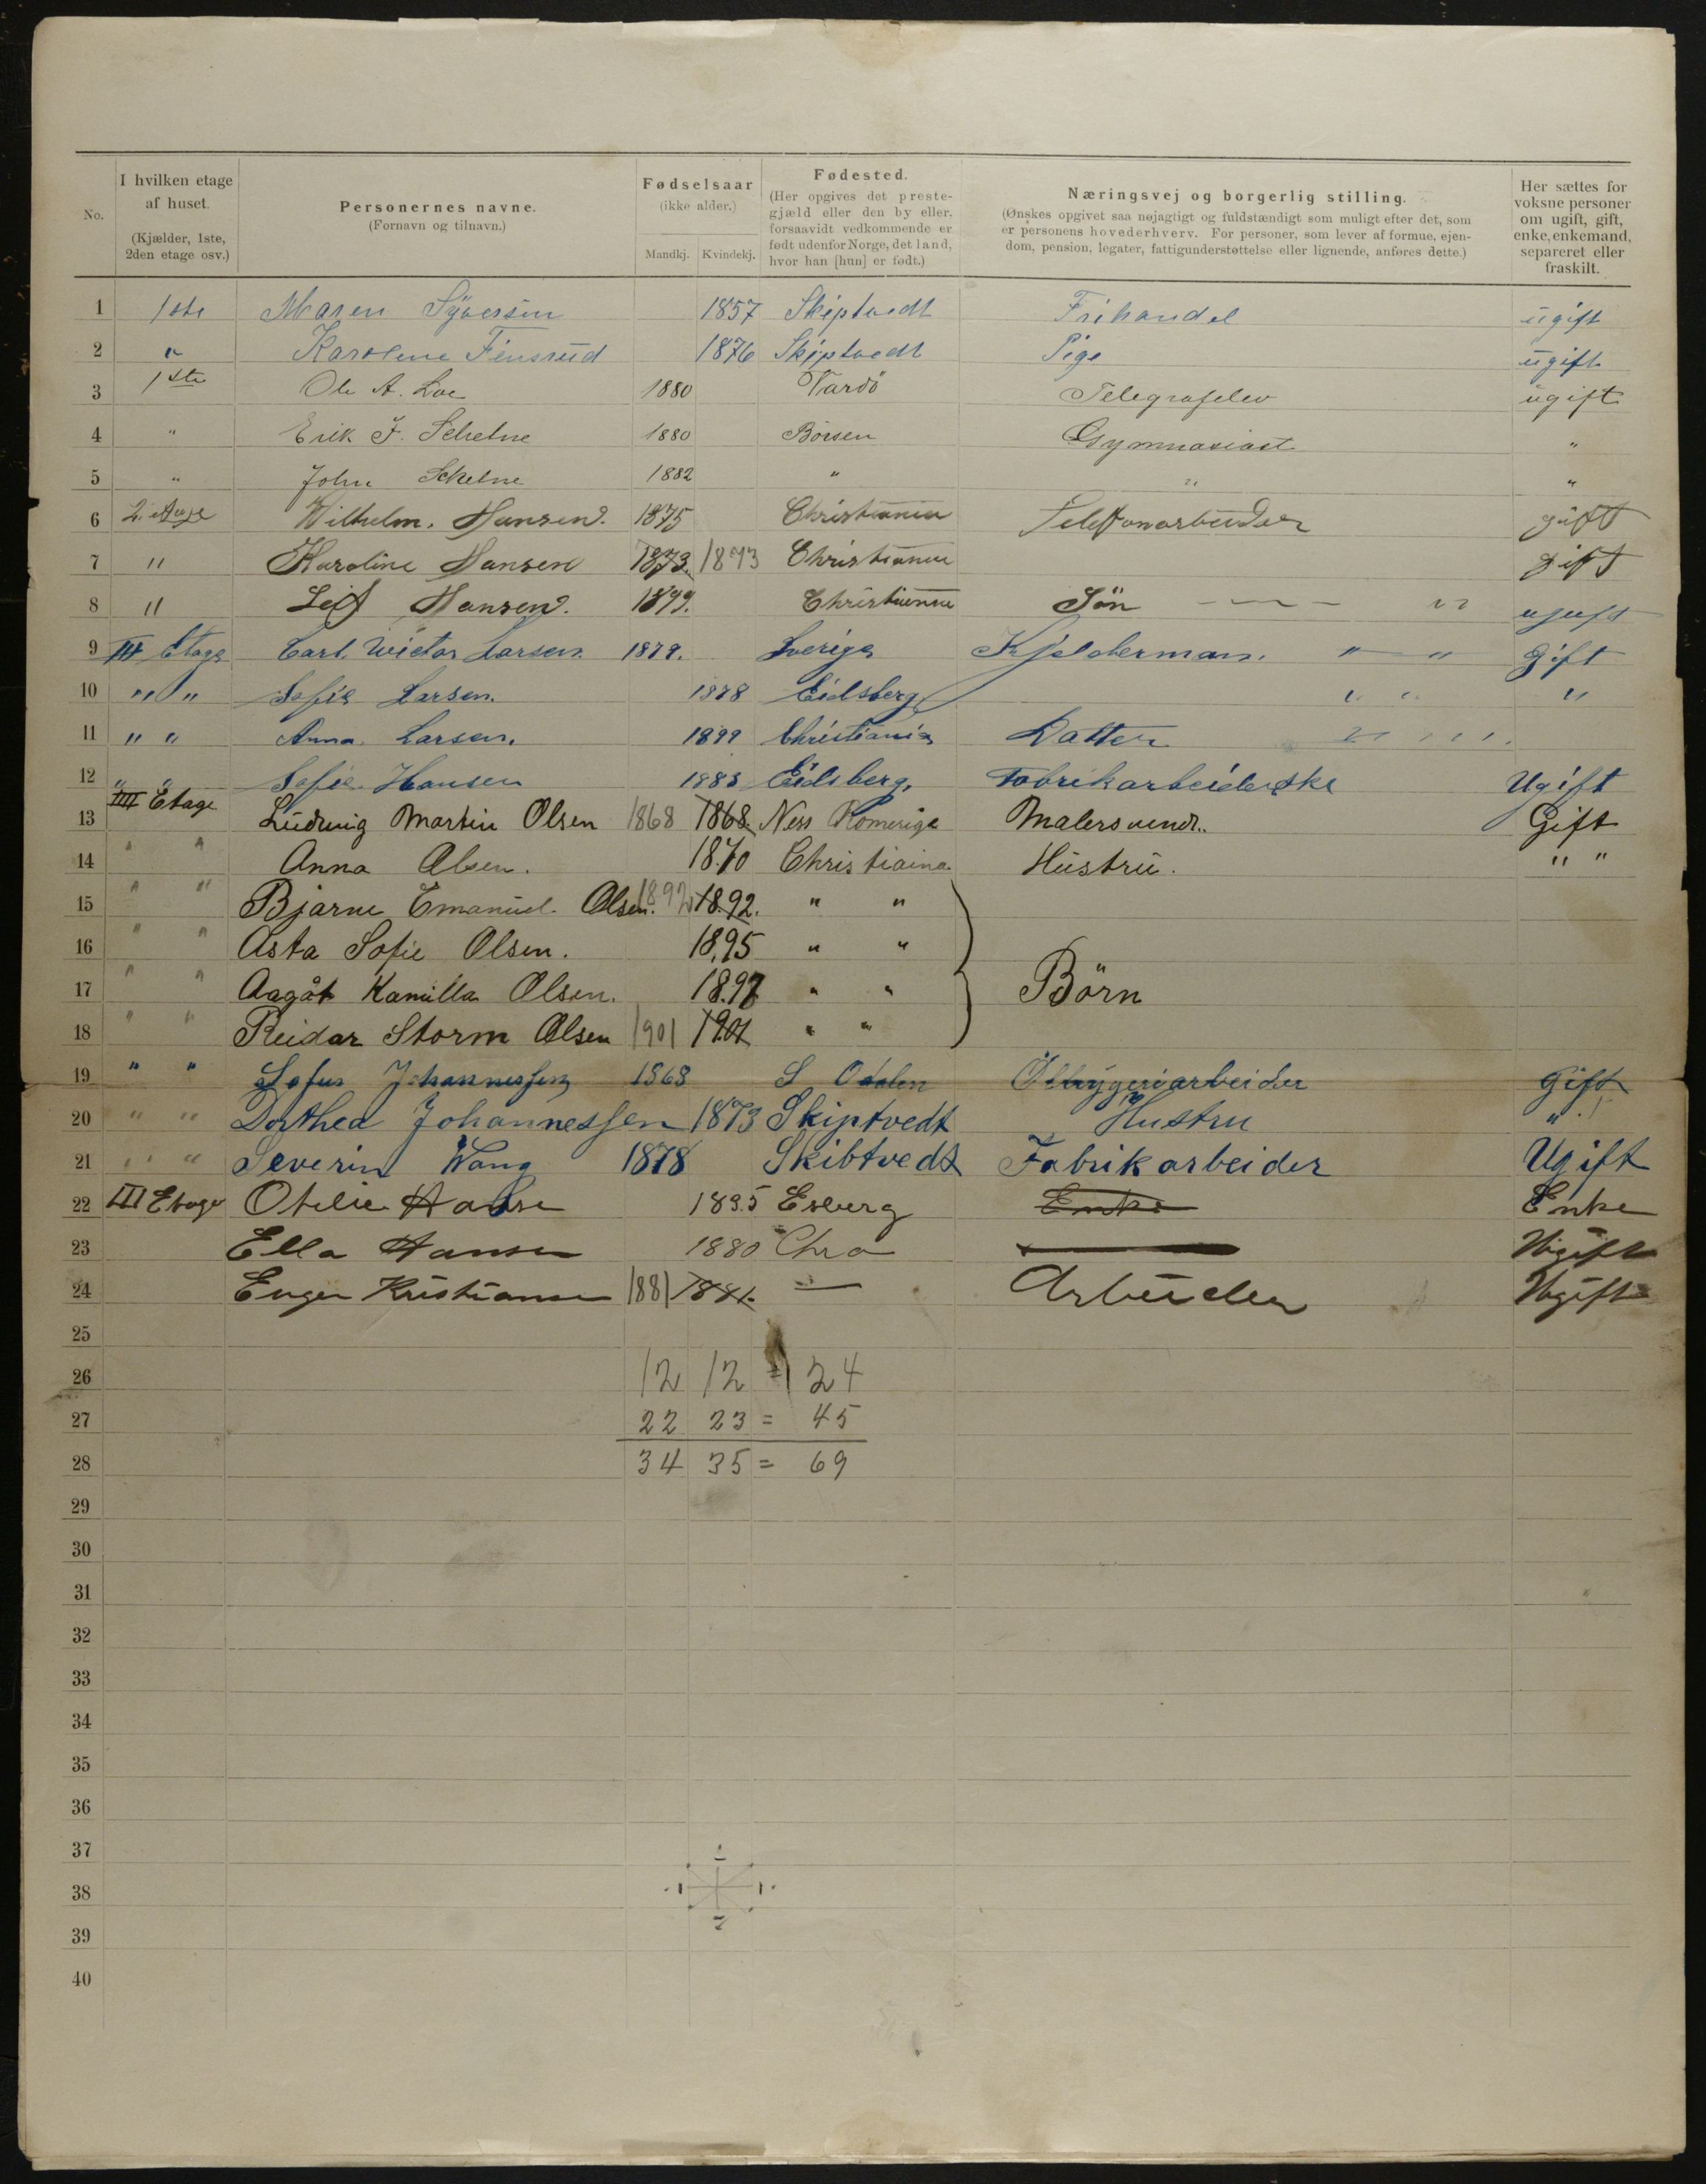 No.
I hvilken etage af huset.
(Kjælder, 1ste, 2den etage osv.)
Personernes navne.
(Fornavn og tilnavn.)
Fødselsaar
(ikke alder.)
Mandkj. Kvindekj.
Fødested.
(Her opgives det prestegjæld eller den by eller, forsaavidt vedkommende er født udenfor Norge, det land, hvor han [hun] er født.)
Næringsvej og borgerlig stilling.
(Ønskes opgivet saa nøjagtigt og fuldstændigt som muligt efter det, som er personens hovederhverv. For personer, som lever af formue, ejendom, pension, legater, fattigunderstøttelse eller lignende, anføres dette.)
Her sættes for voksne personer om ugift, gift, enke, enkemand, separeret eller fraskilt.
1 1ste Maren Syversen 1857 Skiptvedt Frihandel ugift
2 " Karolene Finsrud 1876 Skiptvedt Pige ugift
3 1ste Ole A. Loe 1880 Vardö Telegrafelev ugift
4 " Erik F. Schelne 1880 Börsen Gymnasiast "
5 " John Schelne 1882 " " "
6 2. etage Wilhelm. Hansen. 1875 Christiania Telefonarbeider gift
7 " Karoline Hansen 1873. 1873 Christiania gift
8 " Leif Hansen. 1899. Christiania Sön " ugift
9 III Etage Carl Wictor Larsen. 1879. Sverige Kjelderman. " " Gift
10 " " Sofie Larsen. 1878 Eidsberg " " "
11 " " Anna Larsen. 1899 Christiania Datter " " "
12 " " Sofie Hansen 1883 Eidsberg, Fabrikarbeiderske Ugift
13 IIII Etage Ludwig Martin Olsen 1868 1868. Ness Romerige Malersvend.. Gift
14 " " Anna Olsen. 1870 Christiaina Hustru. " "
15 " " Bjarne Emanuel Olsen. 1892 1892. " "
16 " " Asta Sofie Olsen. 1895 " "
17 " " Aagåt Kamilla Olsen. 1897 " " Börn
18 " " Reidar Storm Olsen 1901 1901 " "
19 " " Sofus Johannessen 1868 S Odalen Ölbryggeriarbeider Gift
20 " " Dorthea Johannessen 1873 Skiptvedt Hustru "
21 " " Severin Wang 1878 Skibtvedt Fabrikarbeider Ugift
22 III Etage Otelie 1835 Esberg Enke Enke
23 Ella Hansen 1880 Chra Ugift
24 Kristiansen 1881 1881. — Arbeider Ugift
25
26 12 12 = 24
27 22 23 = 45
28 34 35 = 69
29
30
31
32
33
34
35
36
37
38
39
40